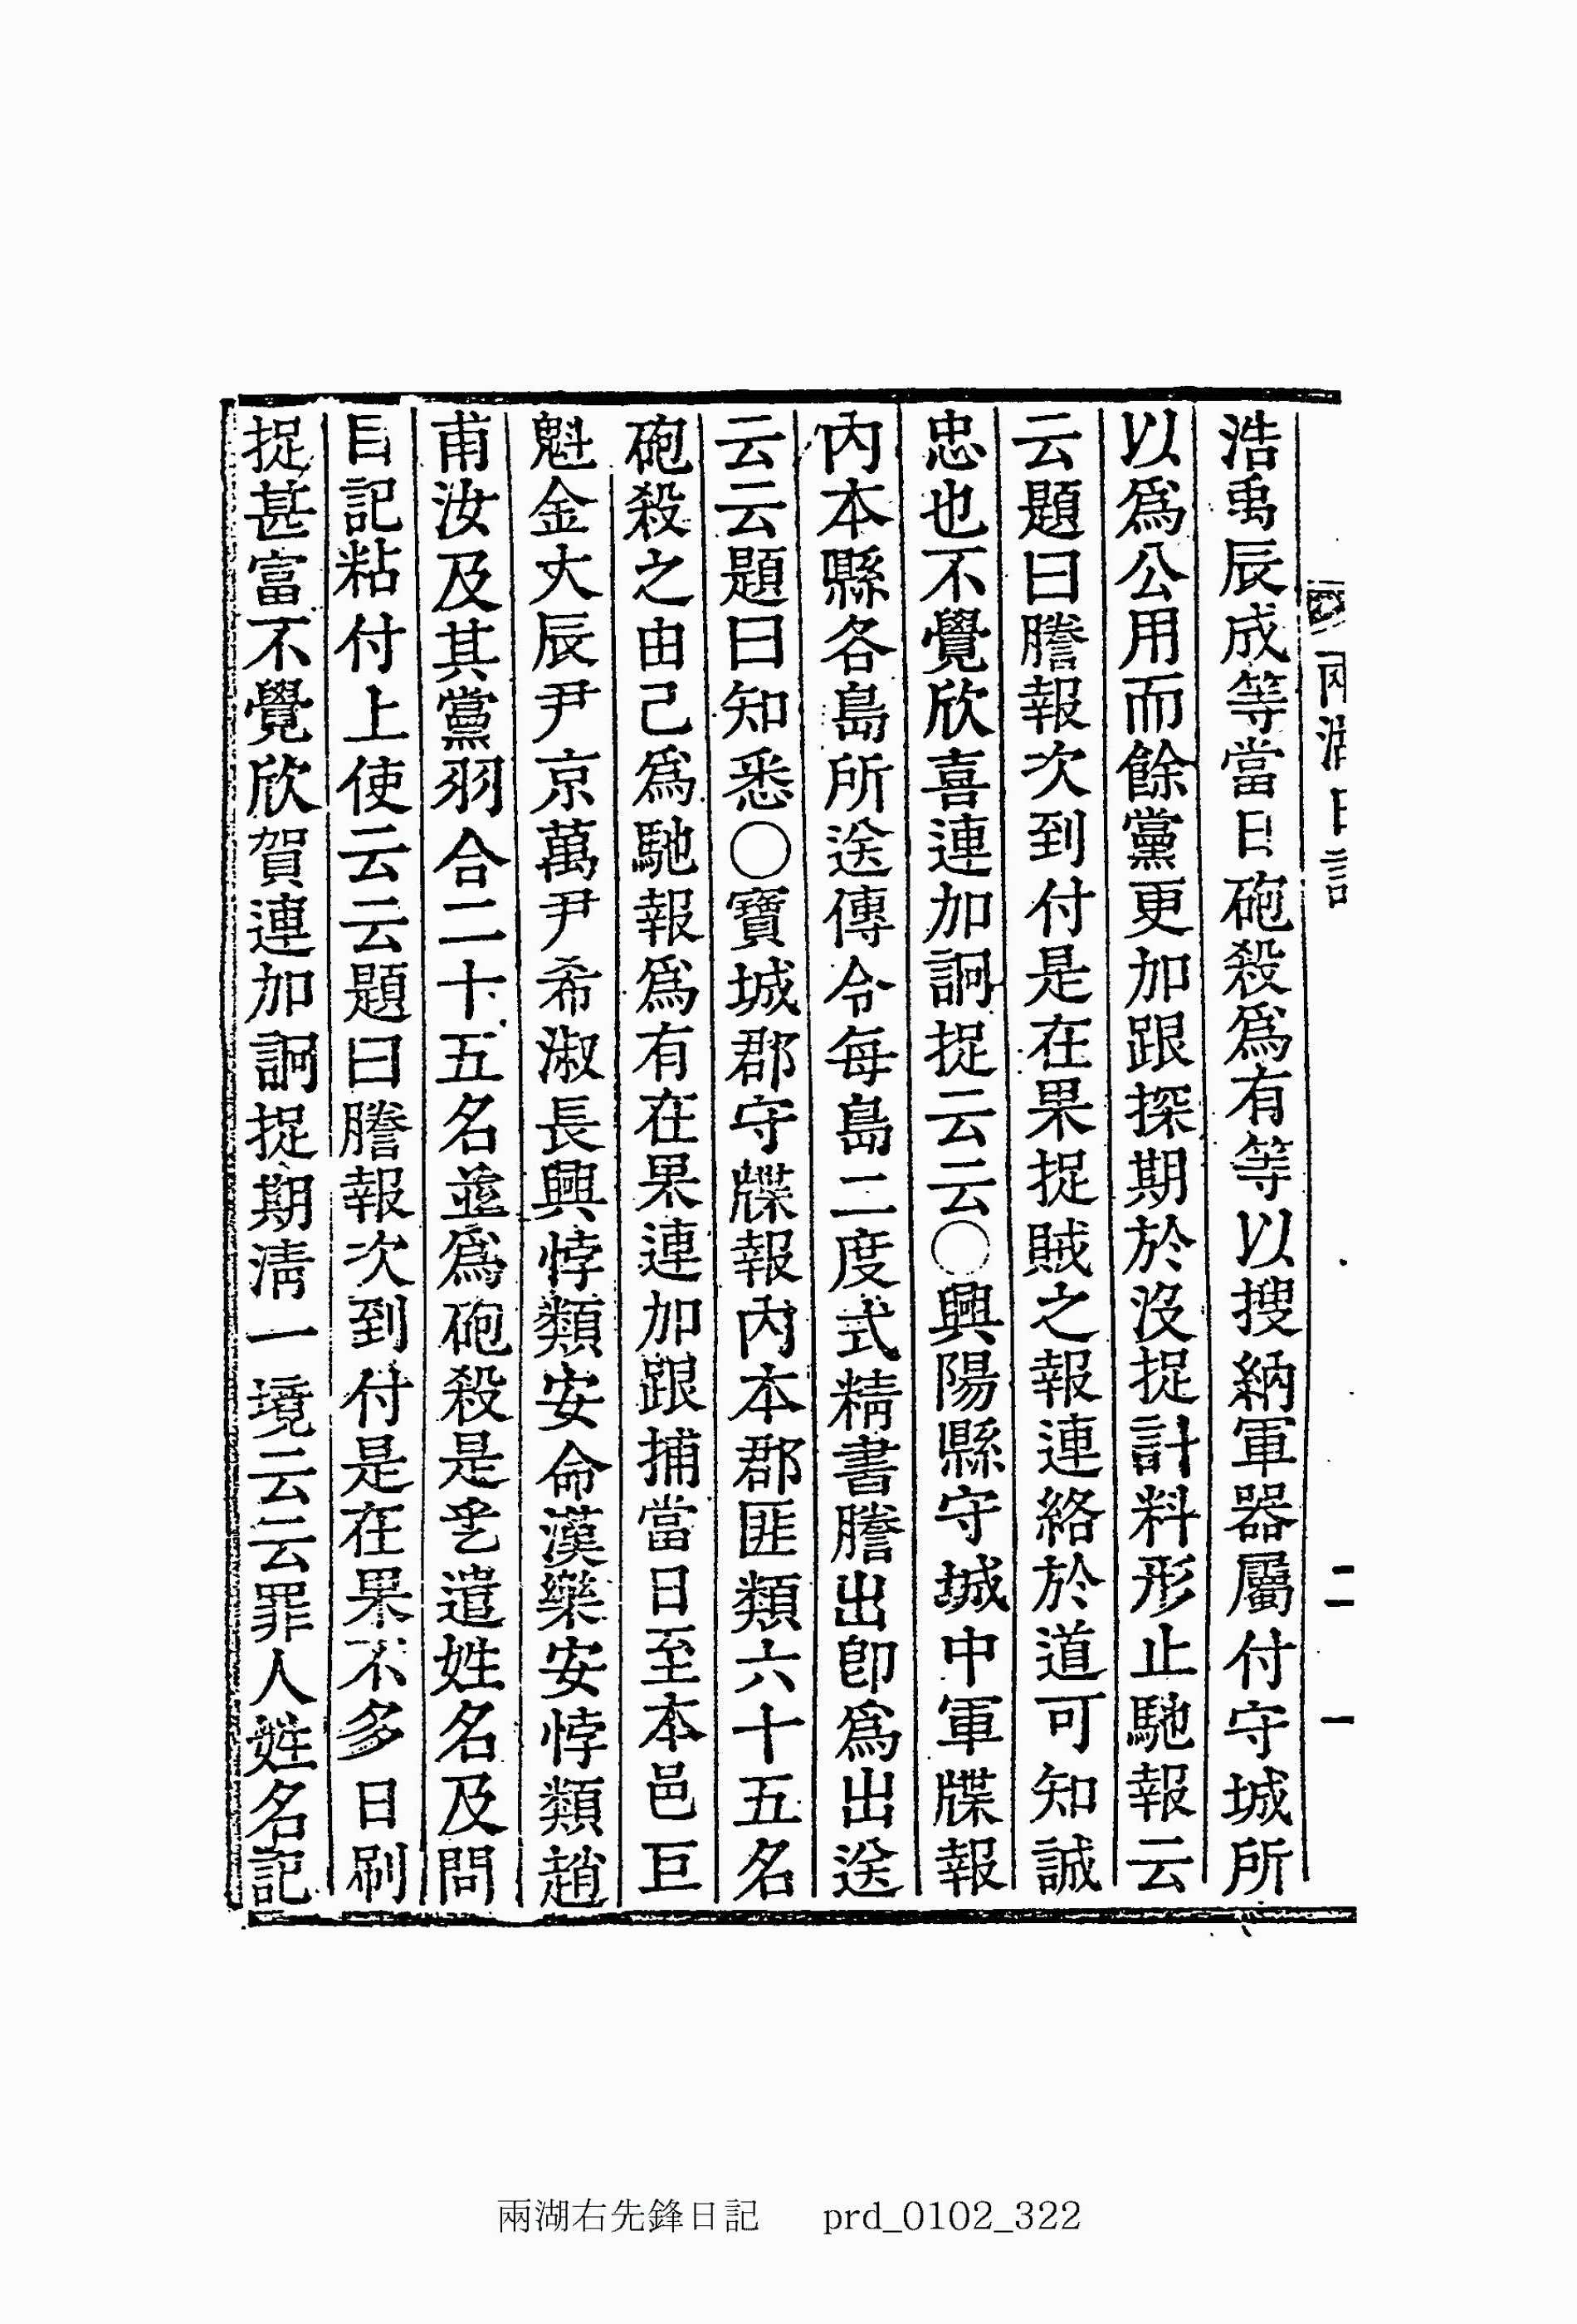 兩湖日記
二一
浩禹辰成等當日砲殺爲有等以搜納軍器屬付守城所
以爲公用而餘黨更加跟探期於沒捉計料形止馳報云
云題曰謄報次到付是在果捉賊之報連絡於道可知誠
忠也不覺欣喜連加詗捉云云〇興陽縣守城中軍牒報
內本縣各島所送傳令每島二度式精書謄出卽爲出送
云云題曰知悉〇寶城郡守牒報內本郡匪類六十五名
砲殺之由己爲馳報爲有在果連加跟捕當日至本邑巨
魁金大辰尹京萬尹希淑長興悖類安命漢樂安悖類趙
甫汝及其黨羽合二十五名並爲砲殺是乎遣姓名及問
目記粘付上使云云題曰謄報次到付是在果不多日刷
捉甚富不覺欣賀連加詗捉期淸一境云云罪人姓名記
兩湖右先鋒日記 prd_0102_322